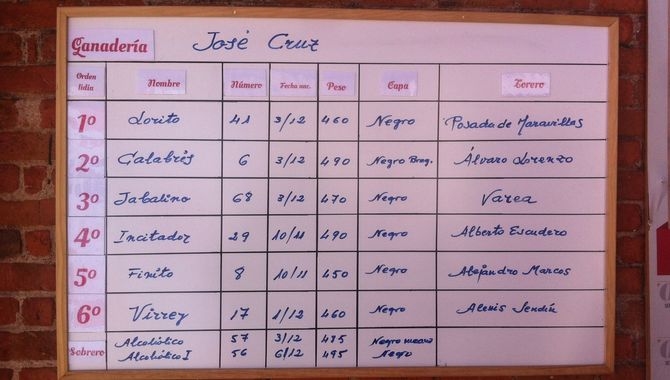 Ganadería José Cruz
Orden lidia Nombre Número Fecha nac. Peso Capa Torero
1º Lorito 41 3/12 460 Negro Posada de Maravillas
2º Calabrés 6 3/12 490 Negro Brag. Álvaro Lorenzo
3º Jabalino 68 3/12 470 Negro Varea
4º Incitador 29 10/11 490 Negro Alberto Escudero
5º Finito 8 10/11 450 Negro Alejandro Marcos
6º Virrey 17 1/12 460 Negro Alexis Sendín
Sobrero Alcohólico 57 3/12 475 Negro
Alcohólico I 56 6/12 495 Negro